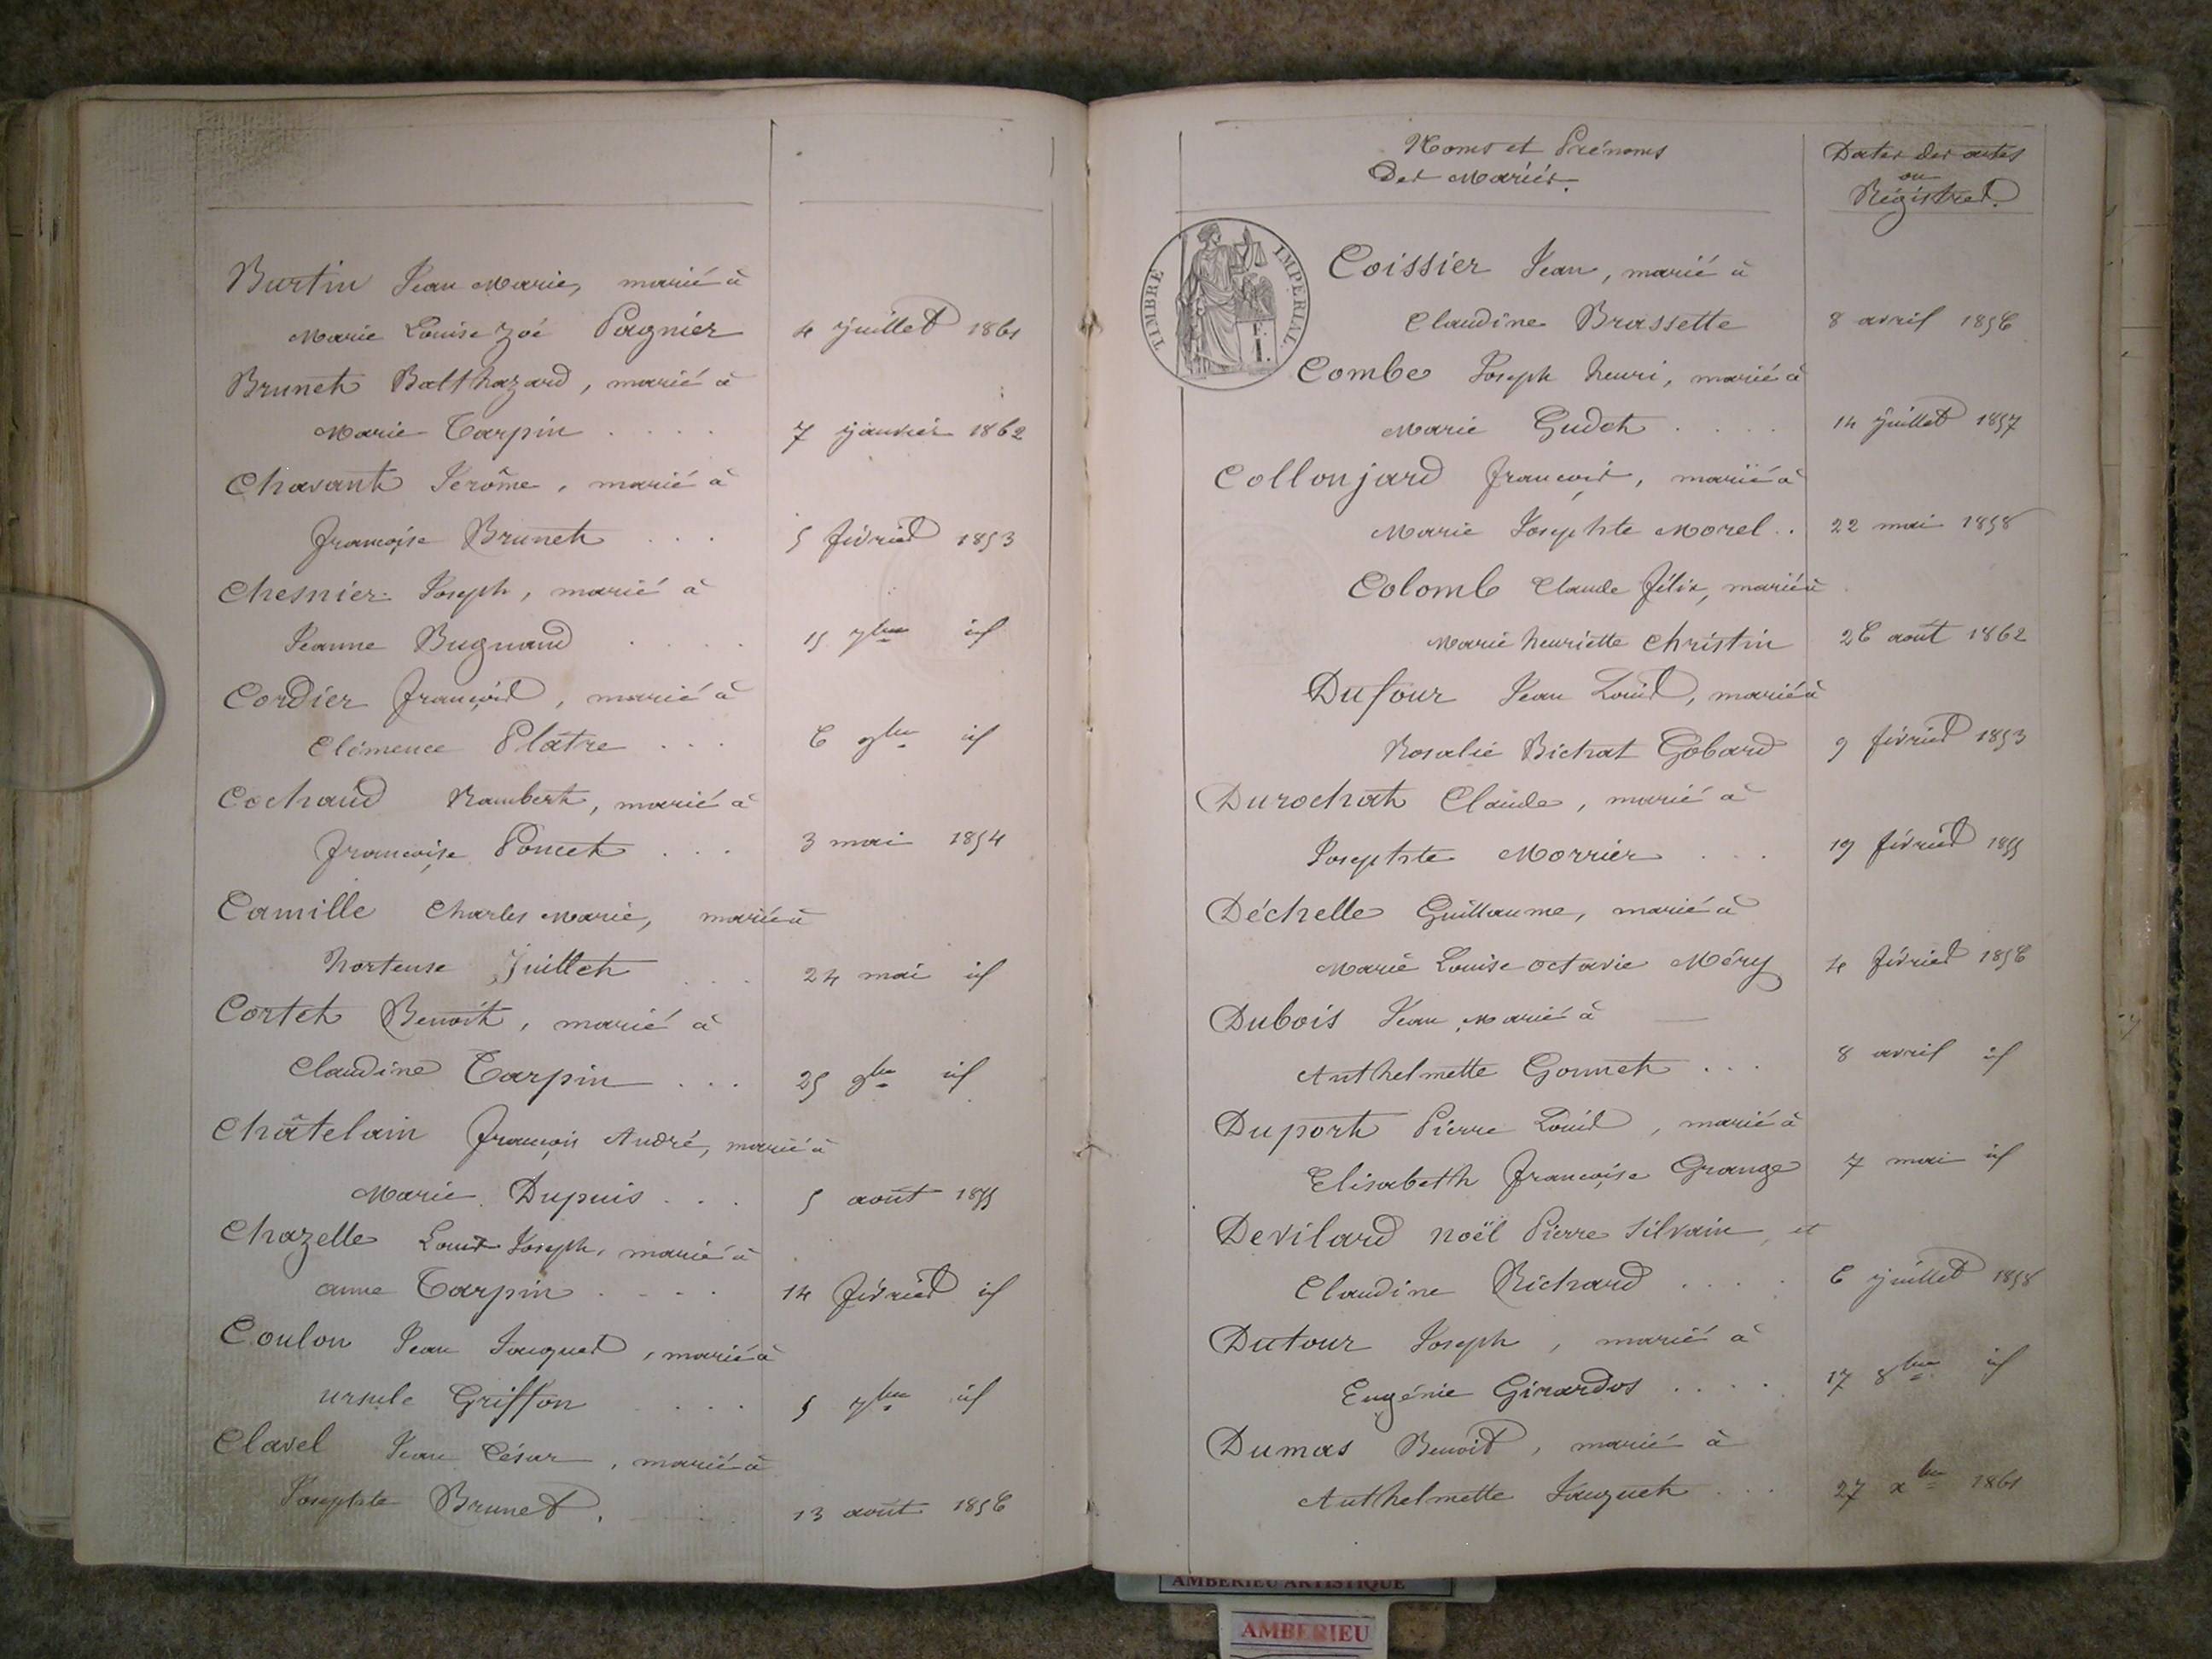 Burtin Jean Marie, marié à
Marie Louise Zoé Pagnier 4 juillet 1861
Brunet Balthazard, marié à
Marie Tarpin .... 7 janvier 1862
Chavant Jerôme, marié à
Françoise Brunet ... 5 février 1853
Chesnier Joseph, marié à
Jeanne Bugnand .... 15 7bre id
Cordier François, marié à
Clémence Platre ... 6 9bre id
Cochaud Rambert, marié à
Françoise Poncet ... 3 mai 1854
Camille Charles Marie, marié à
hortense Juillet ... 24 mai id
Cortet Benoit, marié à
Claudine Tarpin ... 25 9bre id
Châtelain François André, marié à
Marie Dupuis ... 5 août 1855
Chazelle Louis Joseph, marié à
anne Tarpin .... 14 février id
Coulon Jean Jacques, marié à
ursule Griffon .... 5 7bre id
Clavel Jean César, marié à
Josephte Brunet. 13 août 1856
Noms et Prénoms
Des Mariés.
Dates des actes
ou
Régistres.
TIMBRE IMPERIAL
Coissier Jean, marié à
Claudine Brassette 8 avril 1856
Combe Joseph henri, marié à
Marie Gudet .... 14 juillet 1857
Collonjard François, marié à
Marie Josephte Morel .. 22 mai 1858
Colomb Claude Félix, marié à
Marie henriette Christin 26 août 1862
Dufour Jean Louis, marié à
Rosalie Bichat Gobard 9 février 1853
Durochat Claude, marié à
Josephte Morrier ... 19 février 1855
Déchelle Guillaume, marié à
Marie Louise octavie Méry 4 février 1856
Dubois Jean, Marié à
Anthelmette Gonnet ... 8 avril id
Duport Pierre Louis, marié à
Elisabeth Françoise Grange 7 mai id
Devilard noël Pierre Silvain, et
Claudine Richard .... 6 juillet 1858
Dutour Joseph, marié à
Eugénie Girardos .... 17 8bre id
Dumas Benoît, marié à
Anthelmette Jauguet ... 27 xbre 1861
AMBERIEU ARTISTIQUE
AMBERIEU